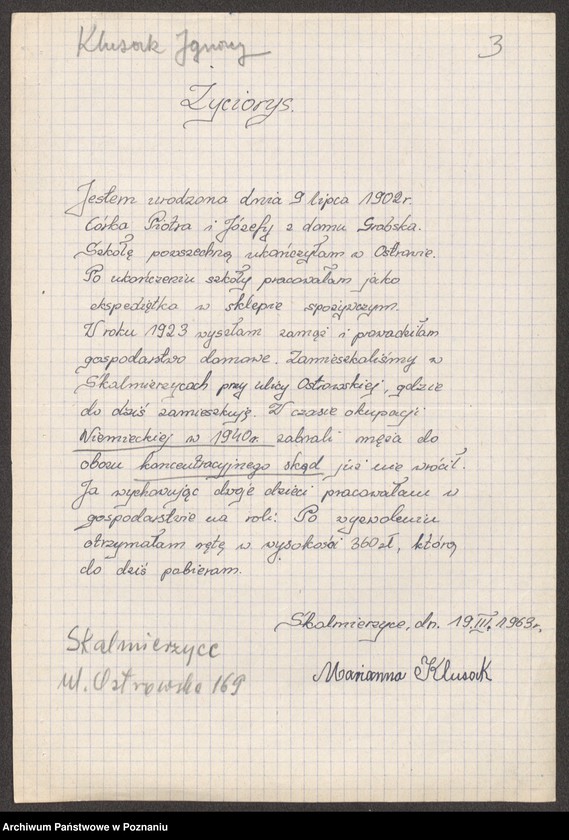 Klusak Ignacy
3
Życiorys.
Jestem urodzona dnia 9 lipca 1902r.
Córka Piotra i Józefy z domu Grobska.
Szkołę powszechną ukończyłam w Ostrowie.
Po ukończeniu szkoły pracowałam jako
ekspedjętka w sklepie spożywczym.
W roku 1923 wyszłam zamąż i prowadziłam
gospodarstwo domowe. Zamieszkaliśmy w
Skalmierzycach przy ulicy Ostrowskiej, gdzie
do dziś zamieszkuję. W czasie okupacji
Niemieckiej w 1940r. zabrali męża do
obozu koncentracyjnego skąd już nie wrócił.
Ja wychowując dwoje dzieci pracowałam w
gospodarstwie na roli: Po wyzwoleniu
otrzymałam rętę w wysokości 360 zł, którą
do dziś pobieram.
Skalmierzyce, dn. 19.III.1963r.
Marianna Klusak
Skalmierzyce
ul. Ostrowska 169
Archiwum Państwowe w Poznaniu